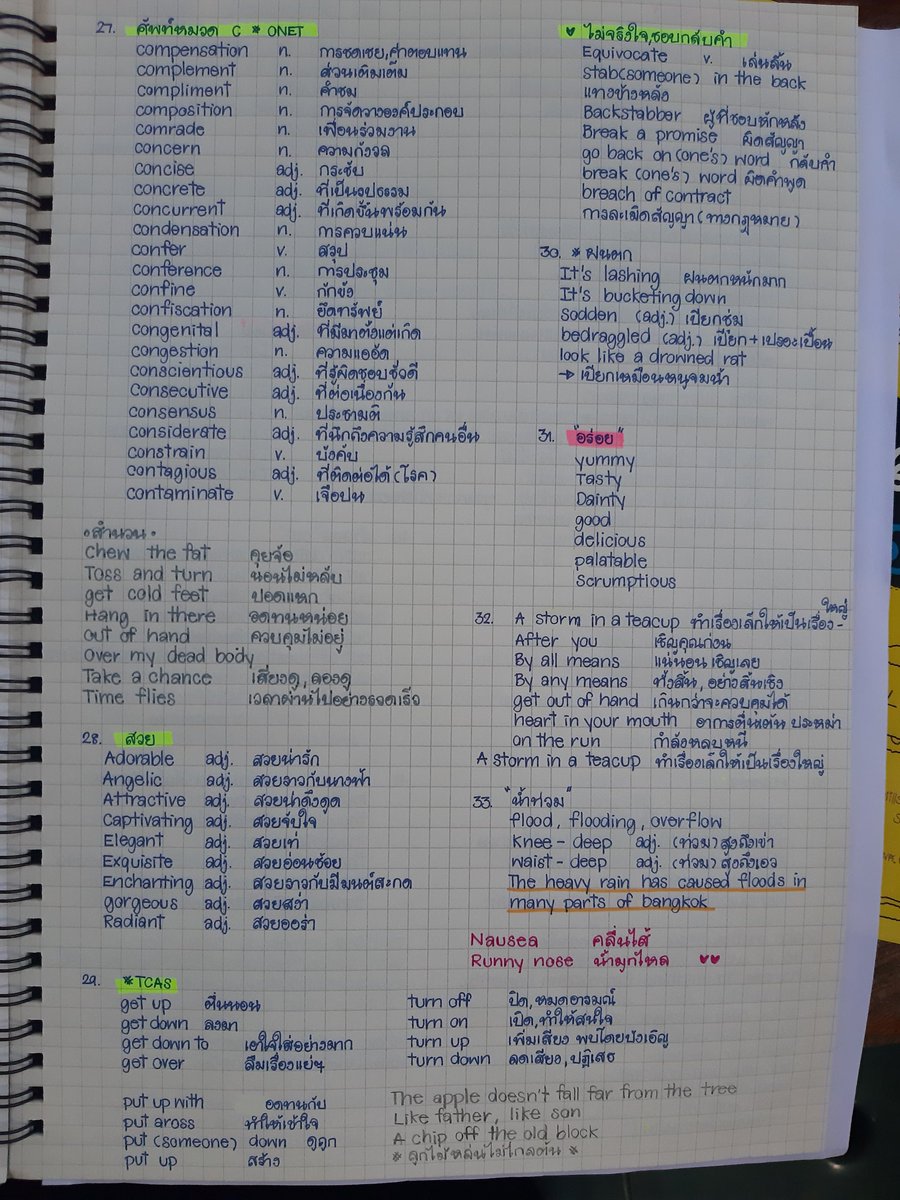 27. ศัพท์หมวด C * ONET
compensation n. การชดเชย,ค่าตอบแทน
complement n. ส่วนเติมเต็ม
compliment n. คำชม
composition n. การจัดวางองค์ประกอบ
comrade n. เพื่อนร่วมงาน
concern n. ความกังวล
concise adj. กระชับ
concrete adj. ที่เป็นรูปธรรม
concurrent adj. ที่เกิดขึ้นพร้อมกัน
condensation n. การควบแน่น
confer v. สรุป
conference n. การประชุม
confine v. กักขัง
confiscation n. ยึดทรัพย์
congenital adj. ที่มีมาตั้งแต่เกิด
congestion n. ความแออัด
conscientious adj. ที่รู้ผิดชอบชั่วดี
consecutive adj. ที่ต่อเนื่องกัน
consensus n. ประชามติ
considerate adj. ที่นึกถึงความรู้สึกคนอื่น
constrain v. บังคับ
contagious adj. ที่ติดต่อได้(โรค)
contaminate v. เจือปน
•สำนวน•
Chew the fat คุยจ้อ
Toss and turn นอนไม่หลับ
get cold feet ปอดแหก
Hang in there อดทนหน่อย
Out of hand ควบคุมไม่อยู่
Over my dead body
Take a chance เสี่ยงดู,ลองดู
Time flies เวลาผ่านไปอย่างรวดเร็ว
28. สวย
Adorable adj. สวยน่ารัก
Angelic adj. สวยราวกับนางฟ้า
Attractive adj. สวยน่าดึงดูด
Captivating adj. สวยจับใจ
Elegant adj. สวยเท่
Exquisite adj. สวยอ่อนช้อย
Enchanting adj. สวยราวกับมีมนต์สะกด
gorgeous adj. สวยสง่า
Radiant adj. สวยออร่า
29. *TCAS
get up ตื่นนอน
get down ลงมา
get down to เอาใจใส่อย่างมาก
get over ลืมเรื่องแย่ๆ
put up with อดทนกับ
put aross ทำให้เข้าใจ
put (someone) down ดูถูก
put up สร้าง
turn off ปิด,หมดอารมณ์
turn on เปิด,ทำให้สนใจ
turn up เพิ่มเสียง พบโดยบังเอิญ
turn down ลดเสียง,ปฏิเสธ
The apple doesn't fall far from the tree
Like father, like son
A chip off the old block
* ลูกไม้หล่นไม่ไกลต้น *
♥ ไม่จริงใจ,ชอบกลับคำ
Equivocate v. เล่นลิ้น
stab(someone) in the back
แทงข้างหลัง
Backstabber ผู้ที่ชอบหักหลัง
Break a promise ผิดสัญญา
go back on (one's) word กลับคำ
break (one's) word ผิดคำพูด
breach of contract
การละเมิดสัญญา(ทางกฎหมาย)
30. * ฝนตก
It's lashing ฝนตกหนักมาก
It's bucketing down
sodden (adj.) เปียกชุ่ม
bedraggled (adj.) เปียก+เปรอะเปื้อน
look like a drowned rat
→ เปียกเหมือนหนูจมน้ำ
31. "อร่อย"
yummy
Tasty
Dainty
good
delicious
palatable
Scrumptious
32. A storm in a teacup ทำเรื่องเล็กให้เป็นเรื่อง-ใหญ่
After you เชิญคุณก่อน
By all means แน่นอน เชิญเลย
By any means ทั้งสิ้น,อย่างสิ้นเชิง
get out of hand เกินกว่าจะควบคุมได้
heart in your mouth อาการตื่นเต้น ประหม่า
on the run กำลังหลบหนี
A storm in a teacup ทำเรื่องเล็กให้เป็นเรื่องใหญ่
33. "น้ำท่วม"
flood, flooding, overflow
Knee-deep adj. (ท่วม)สูงถึงเข่า
waist-deep adj. (ท่วม)สูงถึงเอว
The heavy rain has caused floods in
many parts of bangkok
Nausea คลื่นไส้
Runny nose น้ำมูกไหล ♥♥